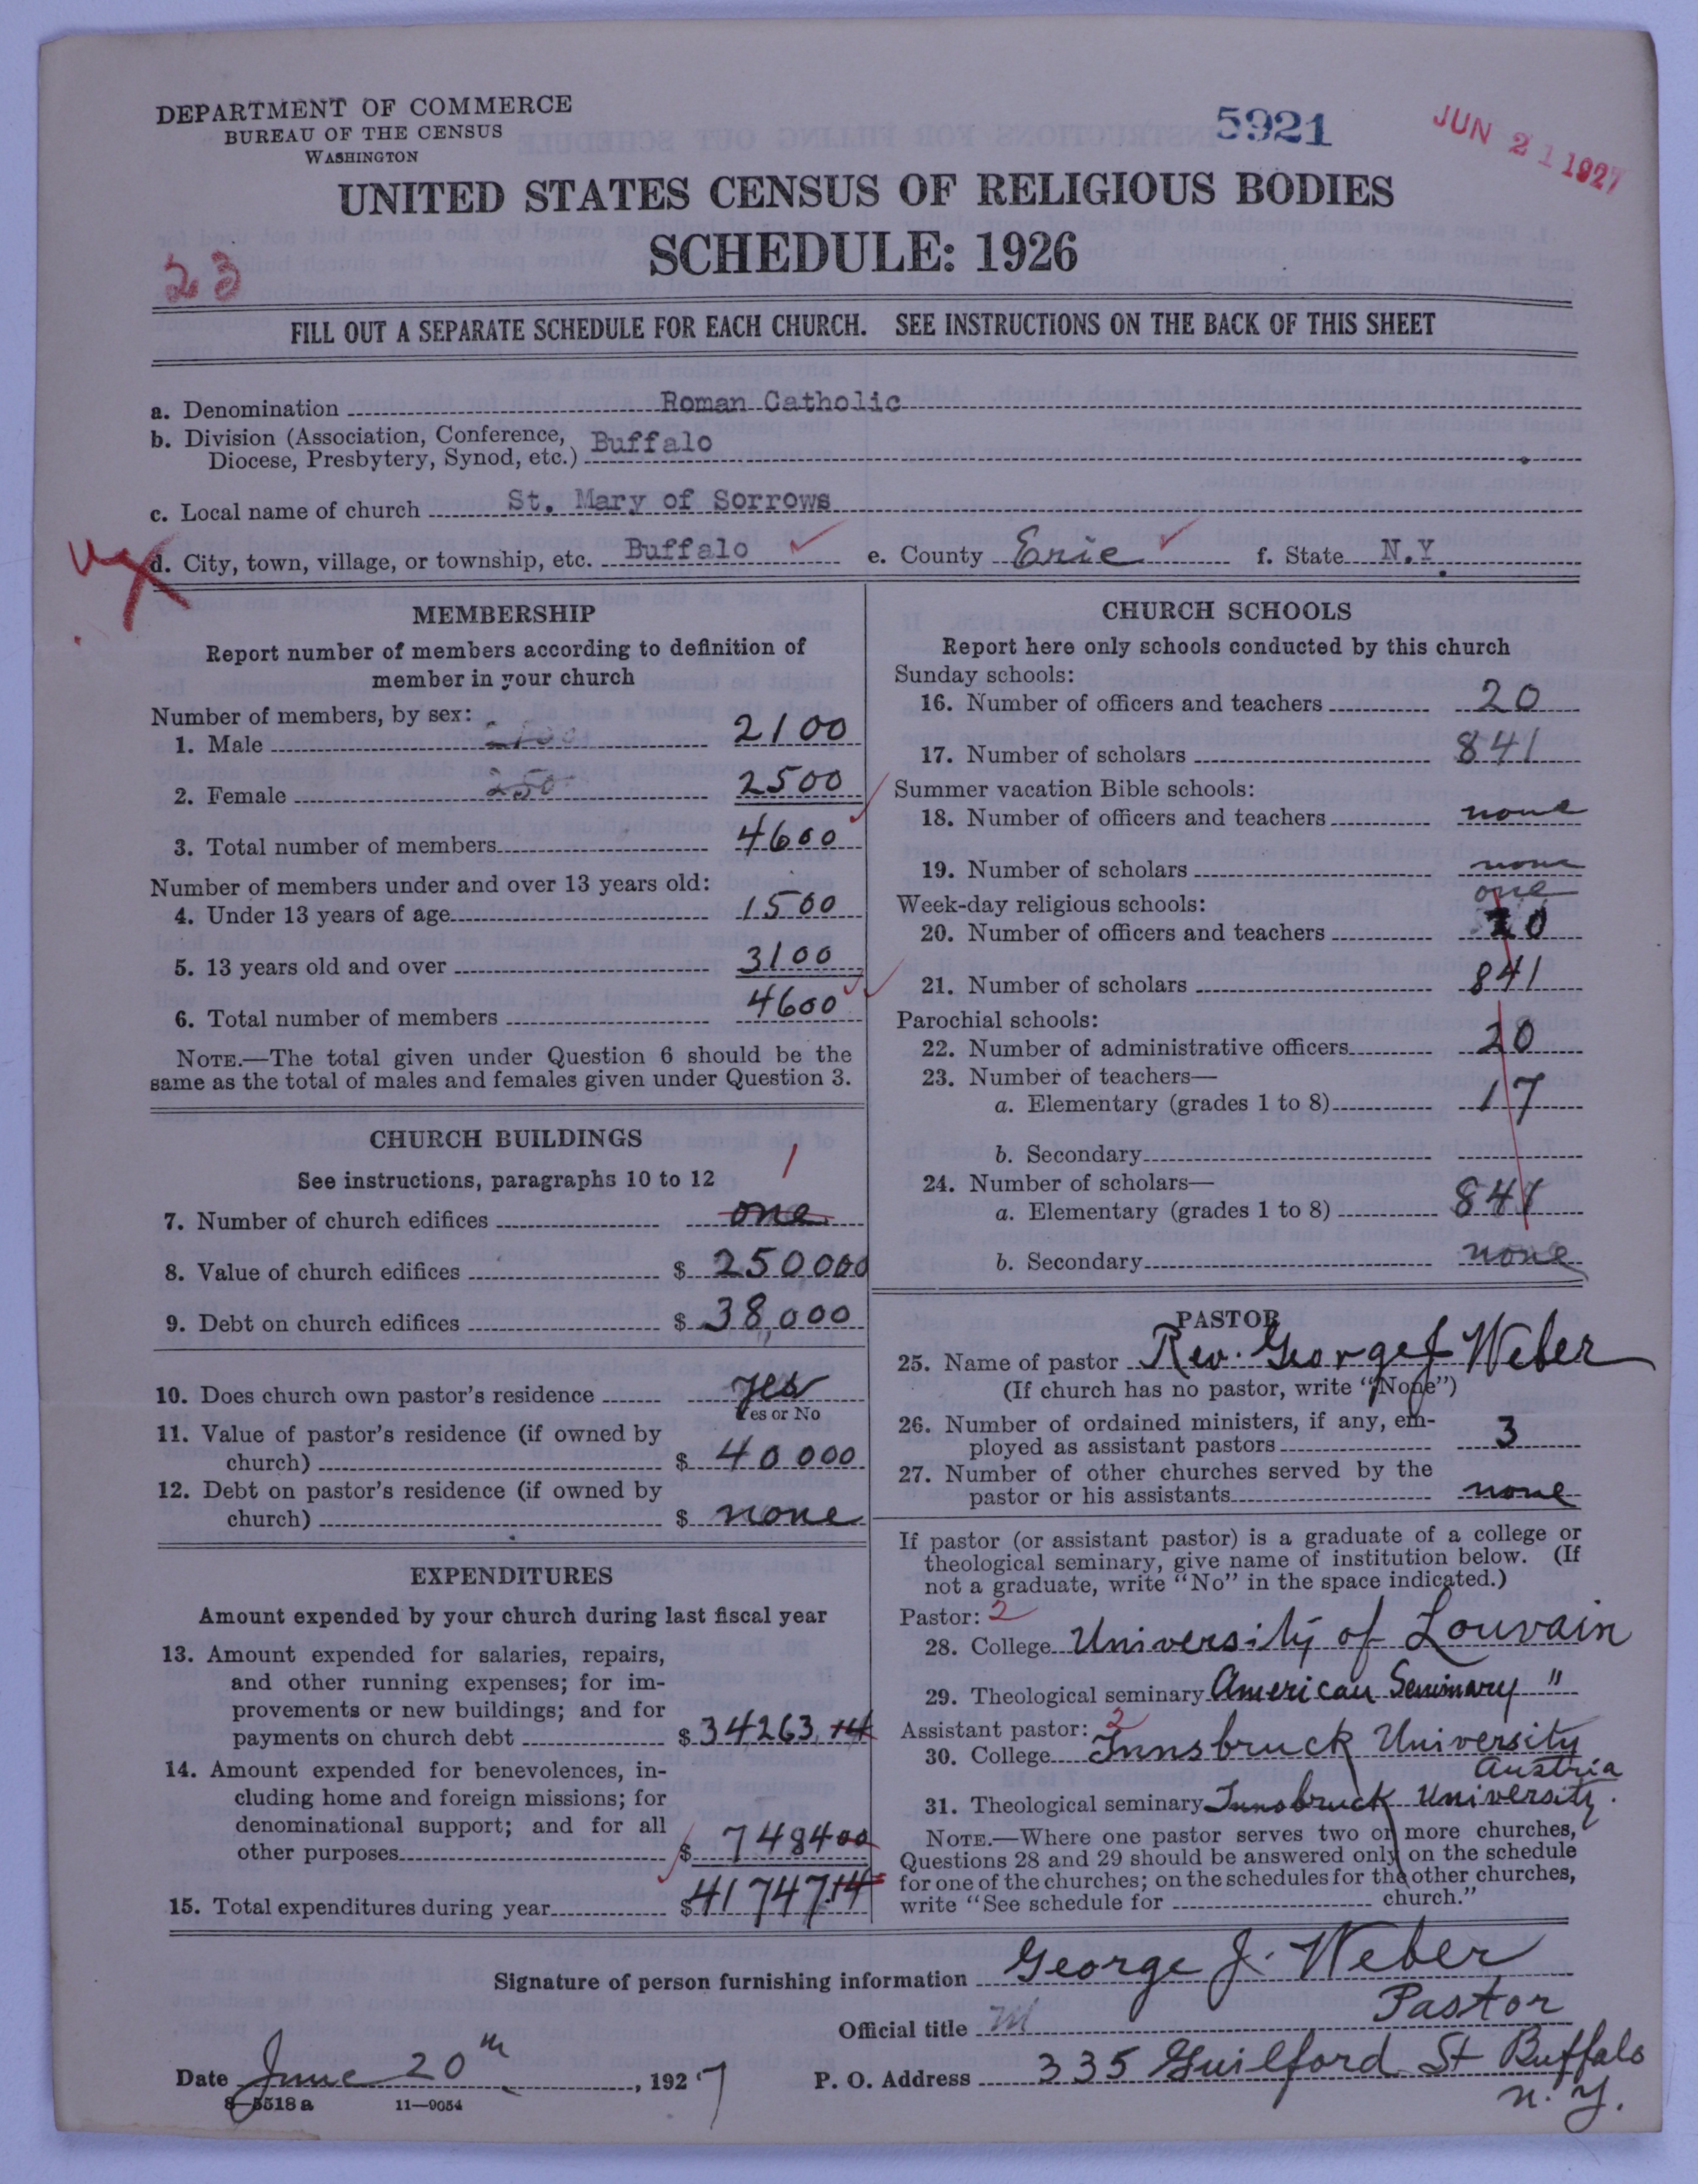 DEPARTMENT OF COMMERCE
BUREAU OF THE CENSUS
WASHINGTON
5921
JUN 21 1927
UNITED STATES CENSUS OF RELIGIOUS BODIES
SCHEDULE: 1926
23
FILL OUT A SEPARATE SCHEDULE FOR EACH CHURCH. SEE INSTRUCTIONS ON THE BACK OF THIS SHEET
a. Denomination Roman Catholic
b. Division (Association, Conference, Diocese, Presbytery, Synod, etc.) Buffalo
c. Local name of church St. Mary of Sorrows
d. City, town, village, or township, etc. Buffalo e. County Erie f. State N.Y.
MEMBERSHIP
Report number of members according to definition of
member in your church
Number of members, by sex:
1. Male 2100 2100
2. Female 250 2500
3. Total number of members 4600
Number of members under and over 13 years old:
4. Under 13 years of age 1500
5. 13 years old and over 3100
6. Total number of members 4600
NOTE.—The total given under Question 6 should be the
same as the total of males and females given under Question 3.
CHURCH BUILDINGS
See instructions, paragraphs 10 to 12
1
7. Number of church edifices one
8. Value of church edifices $ 250000
9. Debt on church edifices $ 38,000
10. Does church own pastor's residence yes
Yes or No
11. Value of pastor's residence (if owned by
church) $ 40000
12. Debt on pastor's residence (if owned by
church) $ none
EXPENDITURES
Amount expended by your church during last fiscal year
13. Amount expended for salaries, repairs,
and other running expenses; for im-
provements or new buildings; and for
payments on church debt $ 34263.14
14. Amount expended for benevolences, in-
cluding home and foreign missions; for
denominational support; and for all
other purposes $ 748400
15. Total expenditures during year $ 41747.14
CHURCH SCHOOLS
Report here only schools conducted by this church
Sunday schools:
16. Number of officers and teachers 20
17. Number of scholars 841
Summer vacation Bible schools:
18. Number of officers and teachers none
19. Number of scholars none
one
Week-day religious schools:
20. Number of officers and teachers 20
21. Number of scholars 841
Parochial schools:
22. Number of administrative officers 20
23. Number of teachers—
a. Elementary (grades 1 to 8) 17
b. Secondary
24. Number of scholars—
a. Elementary (grades 1 to 8) 841
b. Secondary none
PASTOR
25. Name of pastor Rev. George J Weber
(If church has no pastor, write "None")
26. Number of ordained ministers, if any, em-
ployed as assistant pastors 3
27. Number of other churches served by the
pastor or his assistants none
If pastor (or assistant pastor) is a graduate of a college or
theological seminary, give name of institution below. (If
not a graduate, write "No" in the space indicated.)
Pastor: 2
28. College University of Louvain
29. Theological seminary American Seminary "
Assistant pastor: 2
30. College Innsbruck University
Austria
31. Theological seminary Innsbruck University.
NOTE.—Where one pastor serves two or more churches,
Questions 28 and 29 should be answered only on the schedule
for one of the churches; on the schedules for the other churches,
write "See schedule for church."
Signature of person furnishing information George J. Weber
Official title Pastor
Date June 20th, 1927 P. O. Address 335 Guilford St Buffalo
N.Y.
8—5518a 11—9054